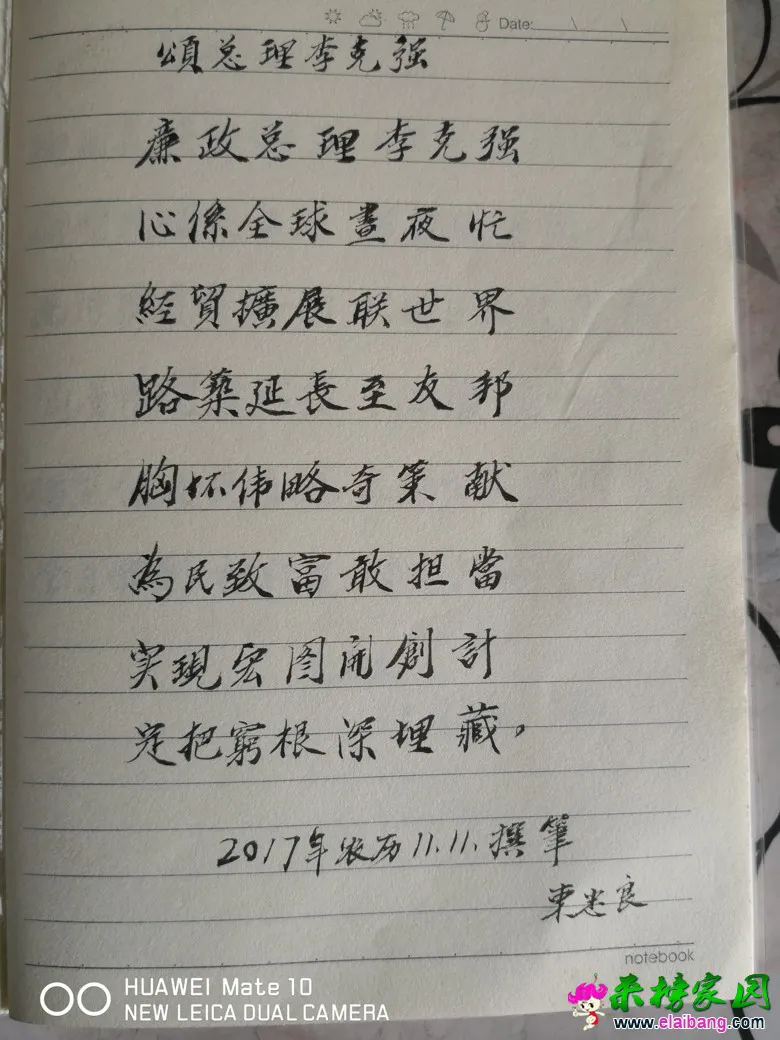 Date: \ \
頌总理李克强
廉政总理李克强
心係全球晝夜忙
經貿擴展联世界
路築延長至友邦
胸怀伟略奇策献
為民致富敢担當
实現宏图開創計
定把窮根深埋藏。
2017年农历11.11.撰筆
良
notebook
HUAWEI Mate 10
NEW LEICA DUAL CAMERA
来榜家园
www.elaibang.com